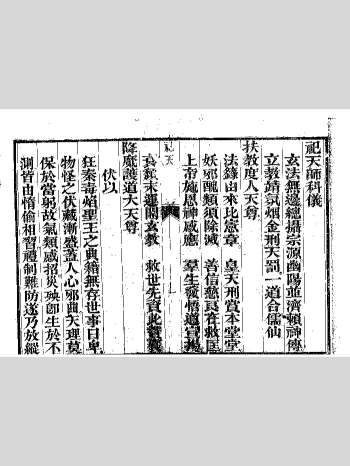 祀天師科儀
玄法無邊總攝宗源幽陽並濟賴神傳
立教靖氛烟金刑天罰一道合儒仙
扶教度人天尊
法籙由來比憲章 皇天刑賞本堂堂
妖邪醜類須除滅 善信慈良在救匡
上帝施恩神感應 羣生發悟道宣
祀天
哀茲末運開玄教 救世先資此寶
降魔護道大天尊
伏以
狂秦毒焰聖王之典籍無存世事日卑
物怪之伏藏漸盛蓋人心邪曲天理莫
保於當躬故氣類感招災殃卽生於不
測皆由情偷相習禮制難防遂乃放縱